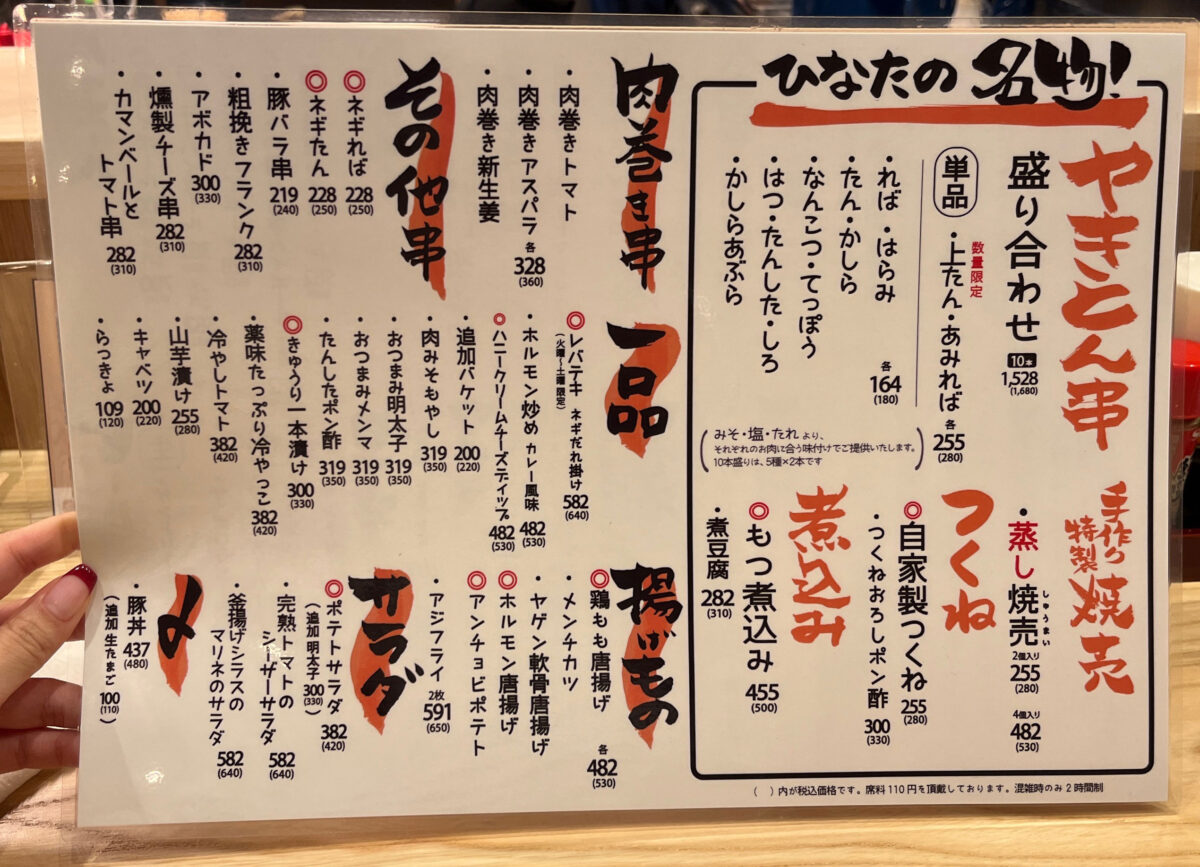 ひなたの名物!
やきとん串
盛り合わせ 10本 1,528 (1,680)
単品
数量限定
・上たん・あみれば 各255 (280)
・れば・はらみ
・たん・かしら
・なんこつ・てっぽう
・はつ・たんした・しろ
・かしらあぶら
各164 (180)
みそ・塩・たれ より、
それぞれのお肉に合う味付けでご提供いたします。
10本盛りは、5種×2本です
手作り
特製
焼売
・蒸し焼売 しゅうまい
2個入り 255 (280)
4個入り 482 (530)
つくね
◎自家製つくね 255 (280)
・つくねおろしポン酢 300 (330)
煮込み
◎もつ煮込み 455 (500)
・煮豆腐 282 (310)
( )内が税込価格です。席料110円を頂戴しております。混雑時のみ2時間制
肉巻き串
・肉巻きトマト
・肉巻きアスパラ 各328 (360)
・肉巻き新生姜
その他串
◎ネギれば 228 (250)
◎ネギたん 228 (250)
・豚バラ串 219 (240)
・粗挽きフランク 282 (310)
・アボカド 300 (330)
・燻製チーズ串 282 (310)
・カマンベールと
トマト串 282 (310)
一品
◎レバテキ ネギだれ掛け 582 (640)
(火曜〜土曜限定)
・ホルモン炒め カレー風味 482 (530)
◎ハニークリームチーズディップ 482 (530)
・追加バケット 200 (220)
・肉みそもやし 319 (350)
・おつまみ明太子 319 (350)
・おつまみメンマ 319 (350)
・たんしたポン酢 319 (350)
◎きゅうり一本漬け 300 (330)
・薬味たっぷり冷やっこ 382 (420)
・冷やしトマト 382 (420)
・山芋漬け 255 (280)
・キャベツ 200 (220)
・らっきょ 109 (120)
揚げもの
◎鶏もも唐揚げ
・メンチカツ
・ヤゲン軟骨唐揚げ
◎ホルモン唐揚げ
◎アンチョビポテト
各482 (530)
・アジフライ 2枚 591 (650)
サラダ
◎ポテトサラダ 382 (420)
(追加 明太子 300 (330))
・完熟トマトの
シーザーサラダ 582 (640)
・釜揚げシラスの
マリネのサラダ 582 (640)
〆
・豚丼 437 (480)
(追加 生たまご 100 (110))